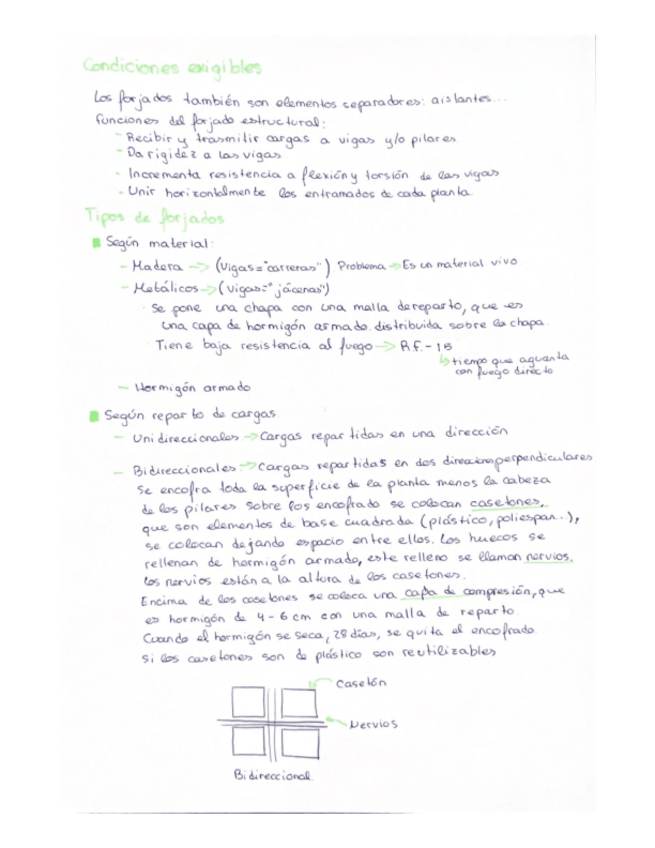 Condiciones exigibles
Los forjados también son elementos separadores: aislantes...
funciones del forjado estructural:
- Recibir y trasmitir cargas a vigas y/o pilares
- Da rigidez a las vigas
- Incrementa resistencia a flexión y torsión de las vigas
- Unir horizontalmente los entramados de cada planta
Tipos de forjados
Según material:
- Madera -> (Vigas="carreras") Problema -> Es un material vivo
- Metálicos -> (vigas="jácenas")
· Se pone una chapa con una malla de reparto, que es
una capa de hormigón armado distribuida sobre la chapa.
· Tiene baja resistencia al fuego -> R.F.-15
↳ tiempo que aguanta
con fuego directo
- Hormigón armado
Según reparto de cargas
- Unidireccionales -> Cargas repartidas en una dirección
- Bidireccionales -> Cargas repartidas en dos direcciones perpendiculares
Se encofra toda la superficie de la planta menos la cabeza
de los pilares. Sobre los encofrado se colocan casetones,
que son elementos de base cuadrada (plástico, poliespan...),
se colocan dejando espacio entre ellos. Los huecos se
rellenan de hormigón armado, este relleno se llaman nervios.
Los nervios están a la altura de los casetones.
Encima de los casetones se coloca una capa de compresión, que
es hormigón de 4-6 cm con una malla de reparto
Cuando el hormigón se seca, 28 días, se quita el encofrado.
Si los casetones son de plástico son reutilizables
Casetón
Nervios
Bidireccional.